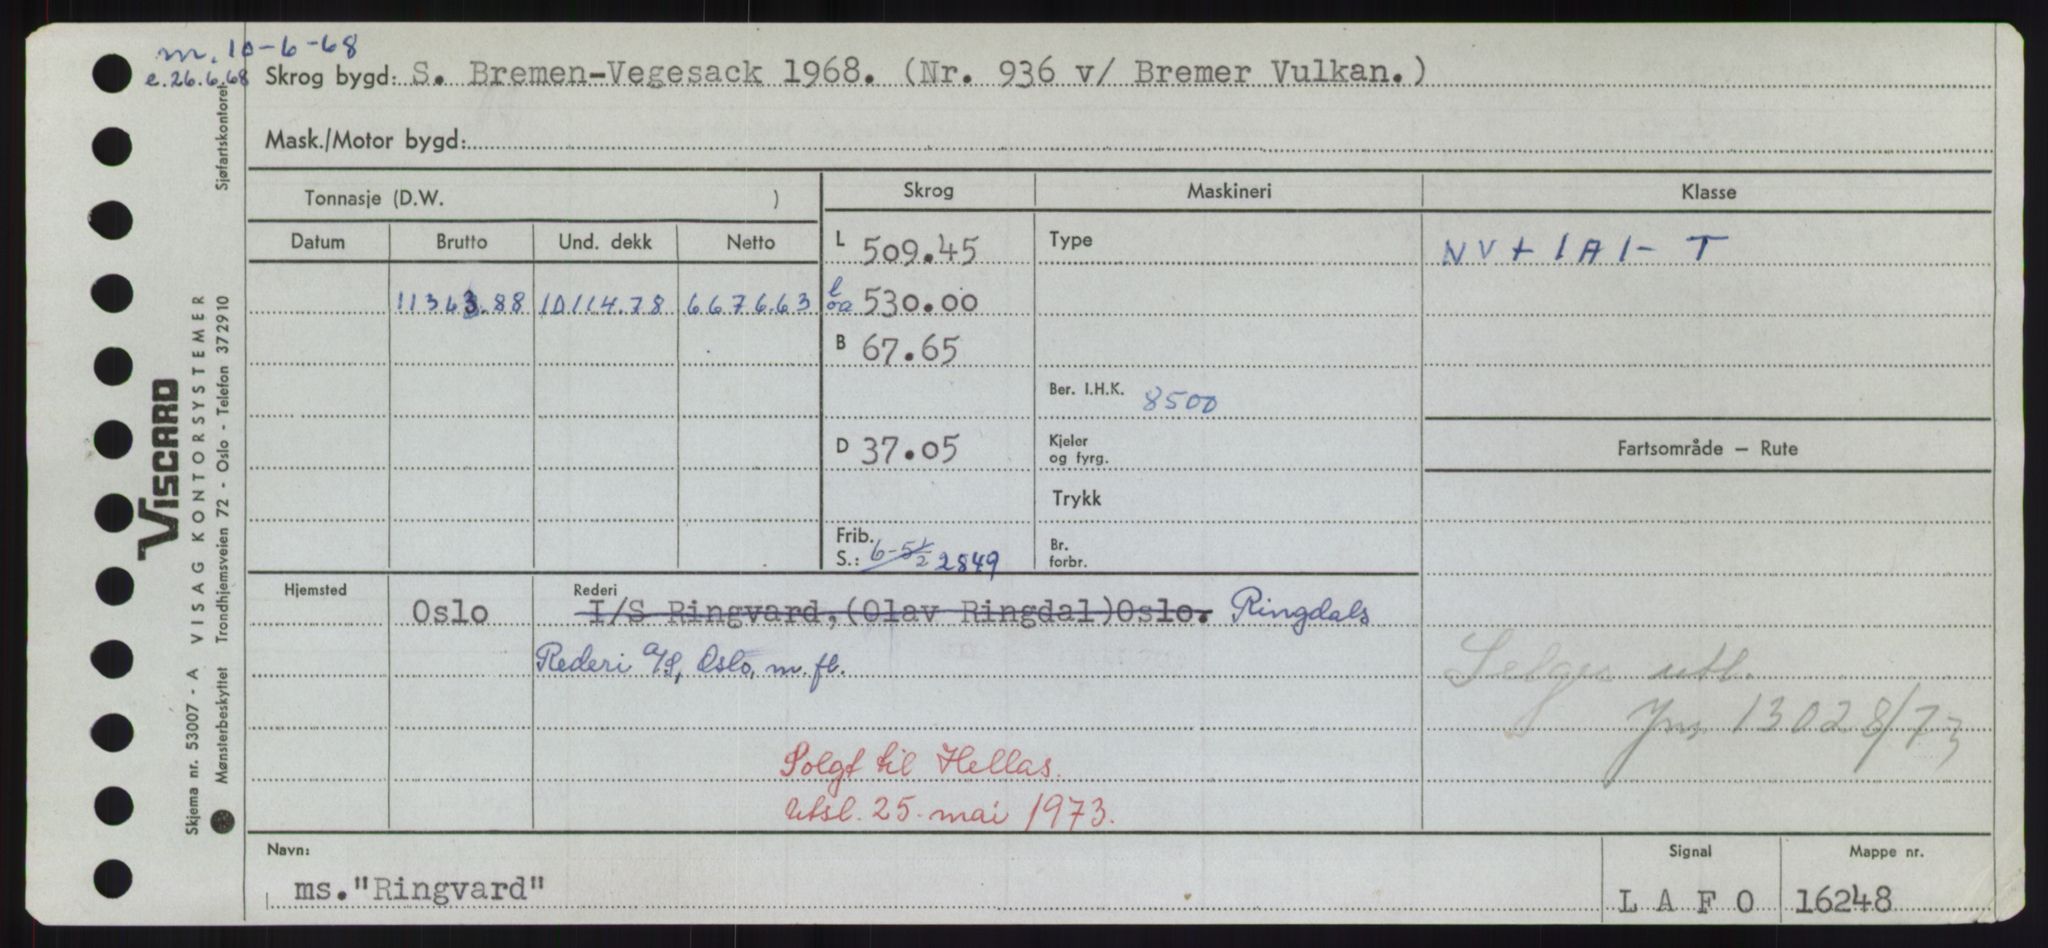 m. 10-6-68
e. 26.6.68
Skrog bygd: S. Bremen-Vegesack 1968. (Nr. 936 v/ Bremer Vulkan.)
Mask./Motor bygd:
Tonnasje (D.W. )
Skrog
Maskineri
Klasse
Datum
Brutto
Und. dekk
Netto
L 509.45
Type
NV + 1A1- T
11363.88
10114.78
6676.63
l oa 530.00
B 67.65
Ber. I.H.K. 8500
D 37.05
Kjeler
og fyrg.
Fartsområde — Rute
Trykk
Frib.
S.: 6-5½ 2849
Br.
forbr.
Hjemsted
Oslo
Rederi
I/S Ringvard, (Olav Ringdal) Oslo. Ringdals
Rederi A/S, Oslo, m. fl.
Selges utl.
13028/73
Solgt til Hellas.
Utsl. 25. mai 1973.
Navn:
ms. "Ringvard"
Signal
L A F O
Mappe nr.
16248
VISCARD
Skjema nr. 53007 - A VISAG KONTORSYSTEMER
Mønsterbeskyttet Trondhjemsveien 72 - Oslo - Telefon 372910 Sjøfartskontoret